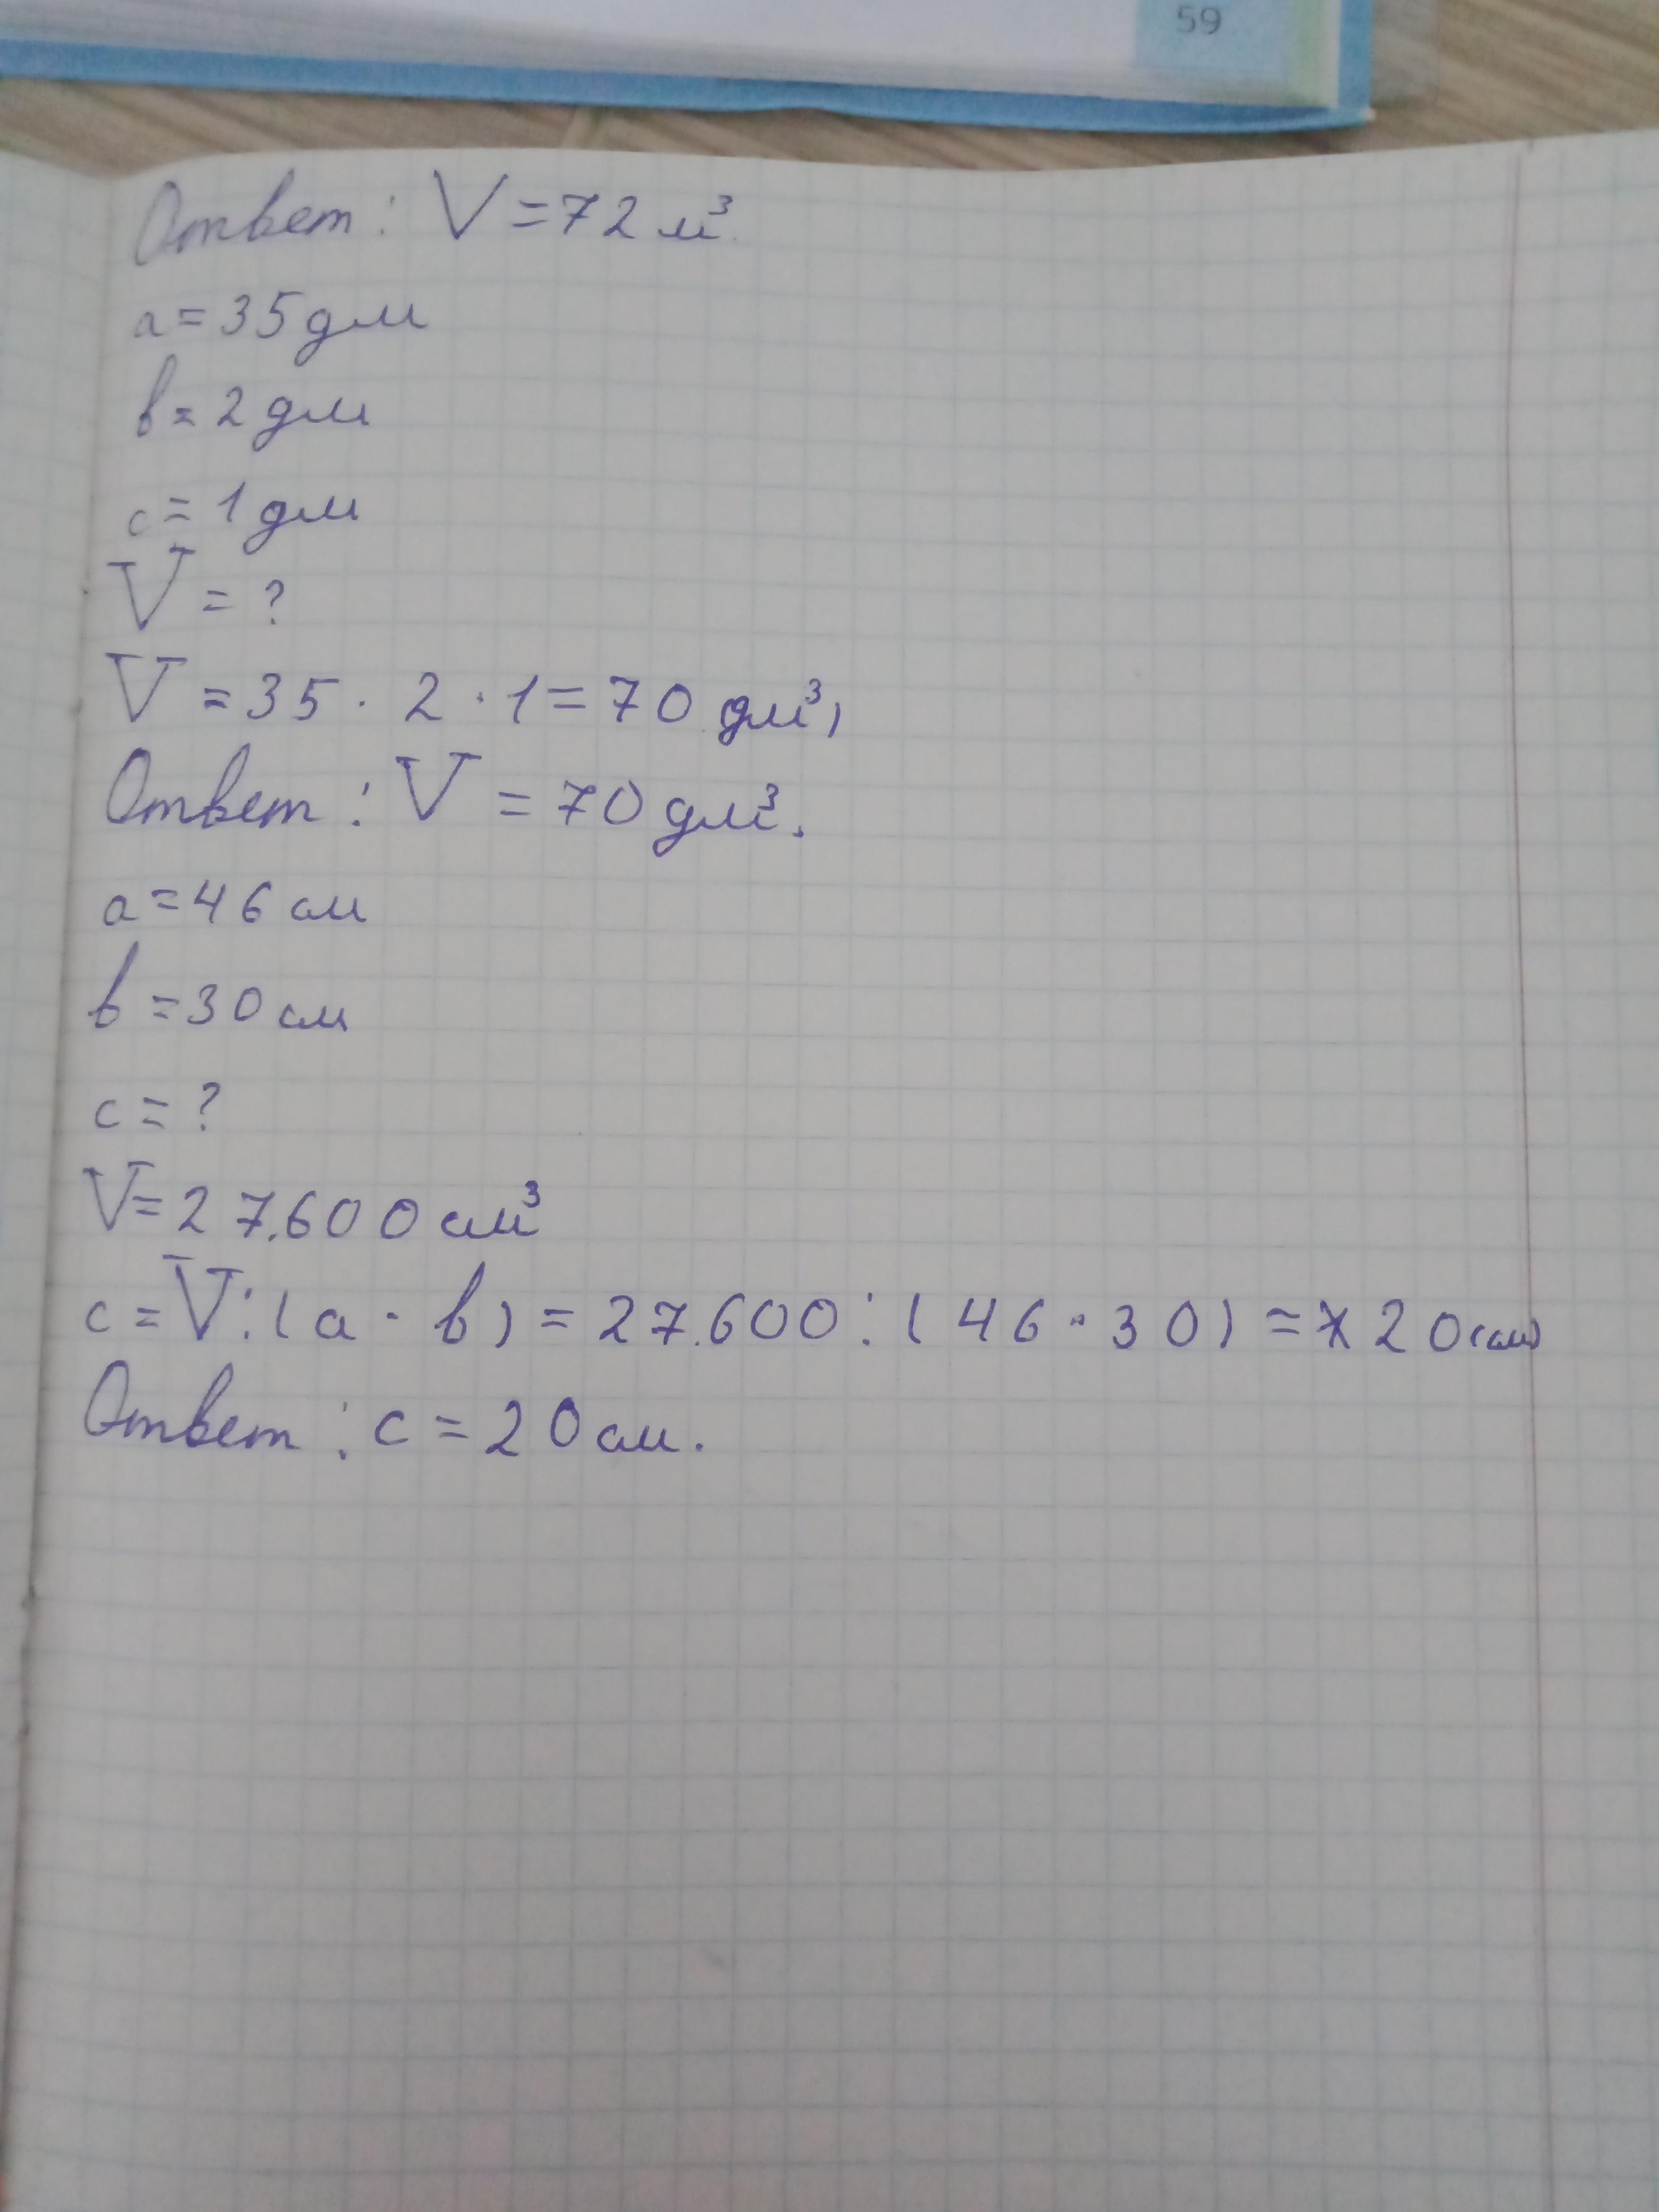 59
Ответ: V = 72 м³.
a = 35 дм
b = 2 дм
c = 1 дм
V = ?
V = 35 · 2 · 1 = 70 дм³,
Ответ: V = 70 дм³.
a = 46 см
b = 30 см
c = ?
V = 27.600 см³
c = V : (a · b) = 27.600 : (46 · 30) = 20 (см)
Ответ: c = 20 см.